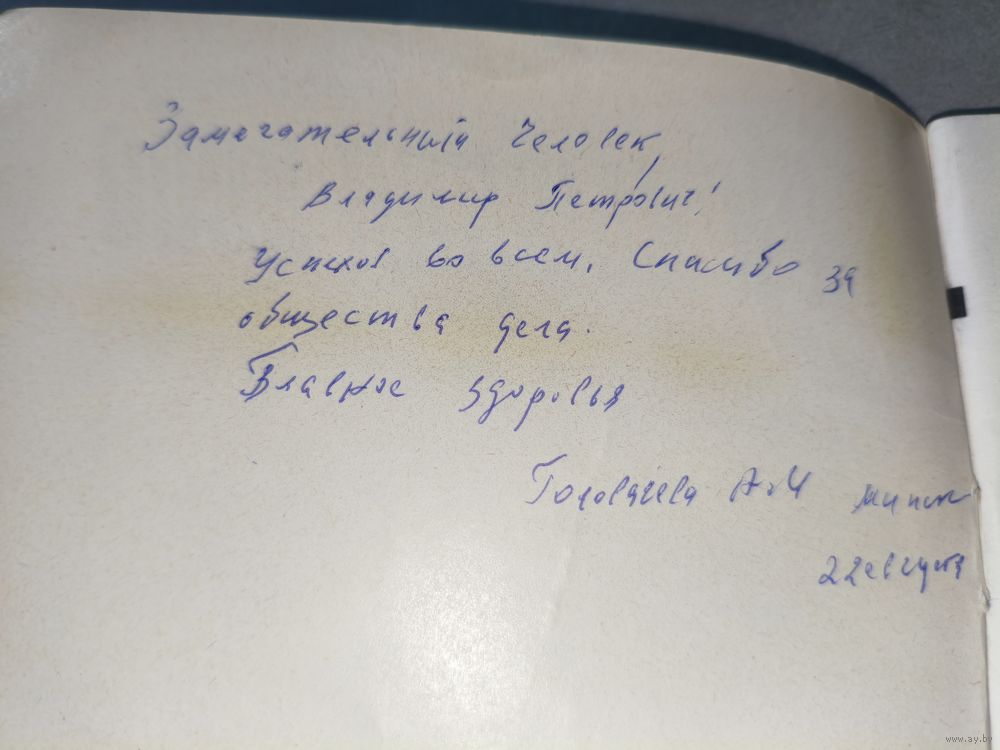 Замечательный Человек,
Владимир Петрович!
Успехов во всем. Спасибо за
общества дела.
Главное здоровья
Головачева А.М Минск
22 августа
www.ay.by